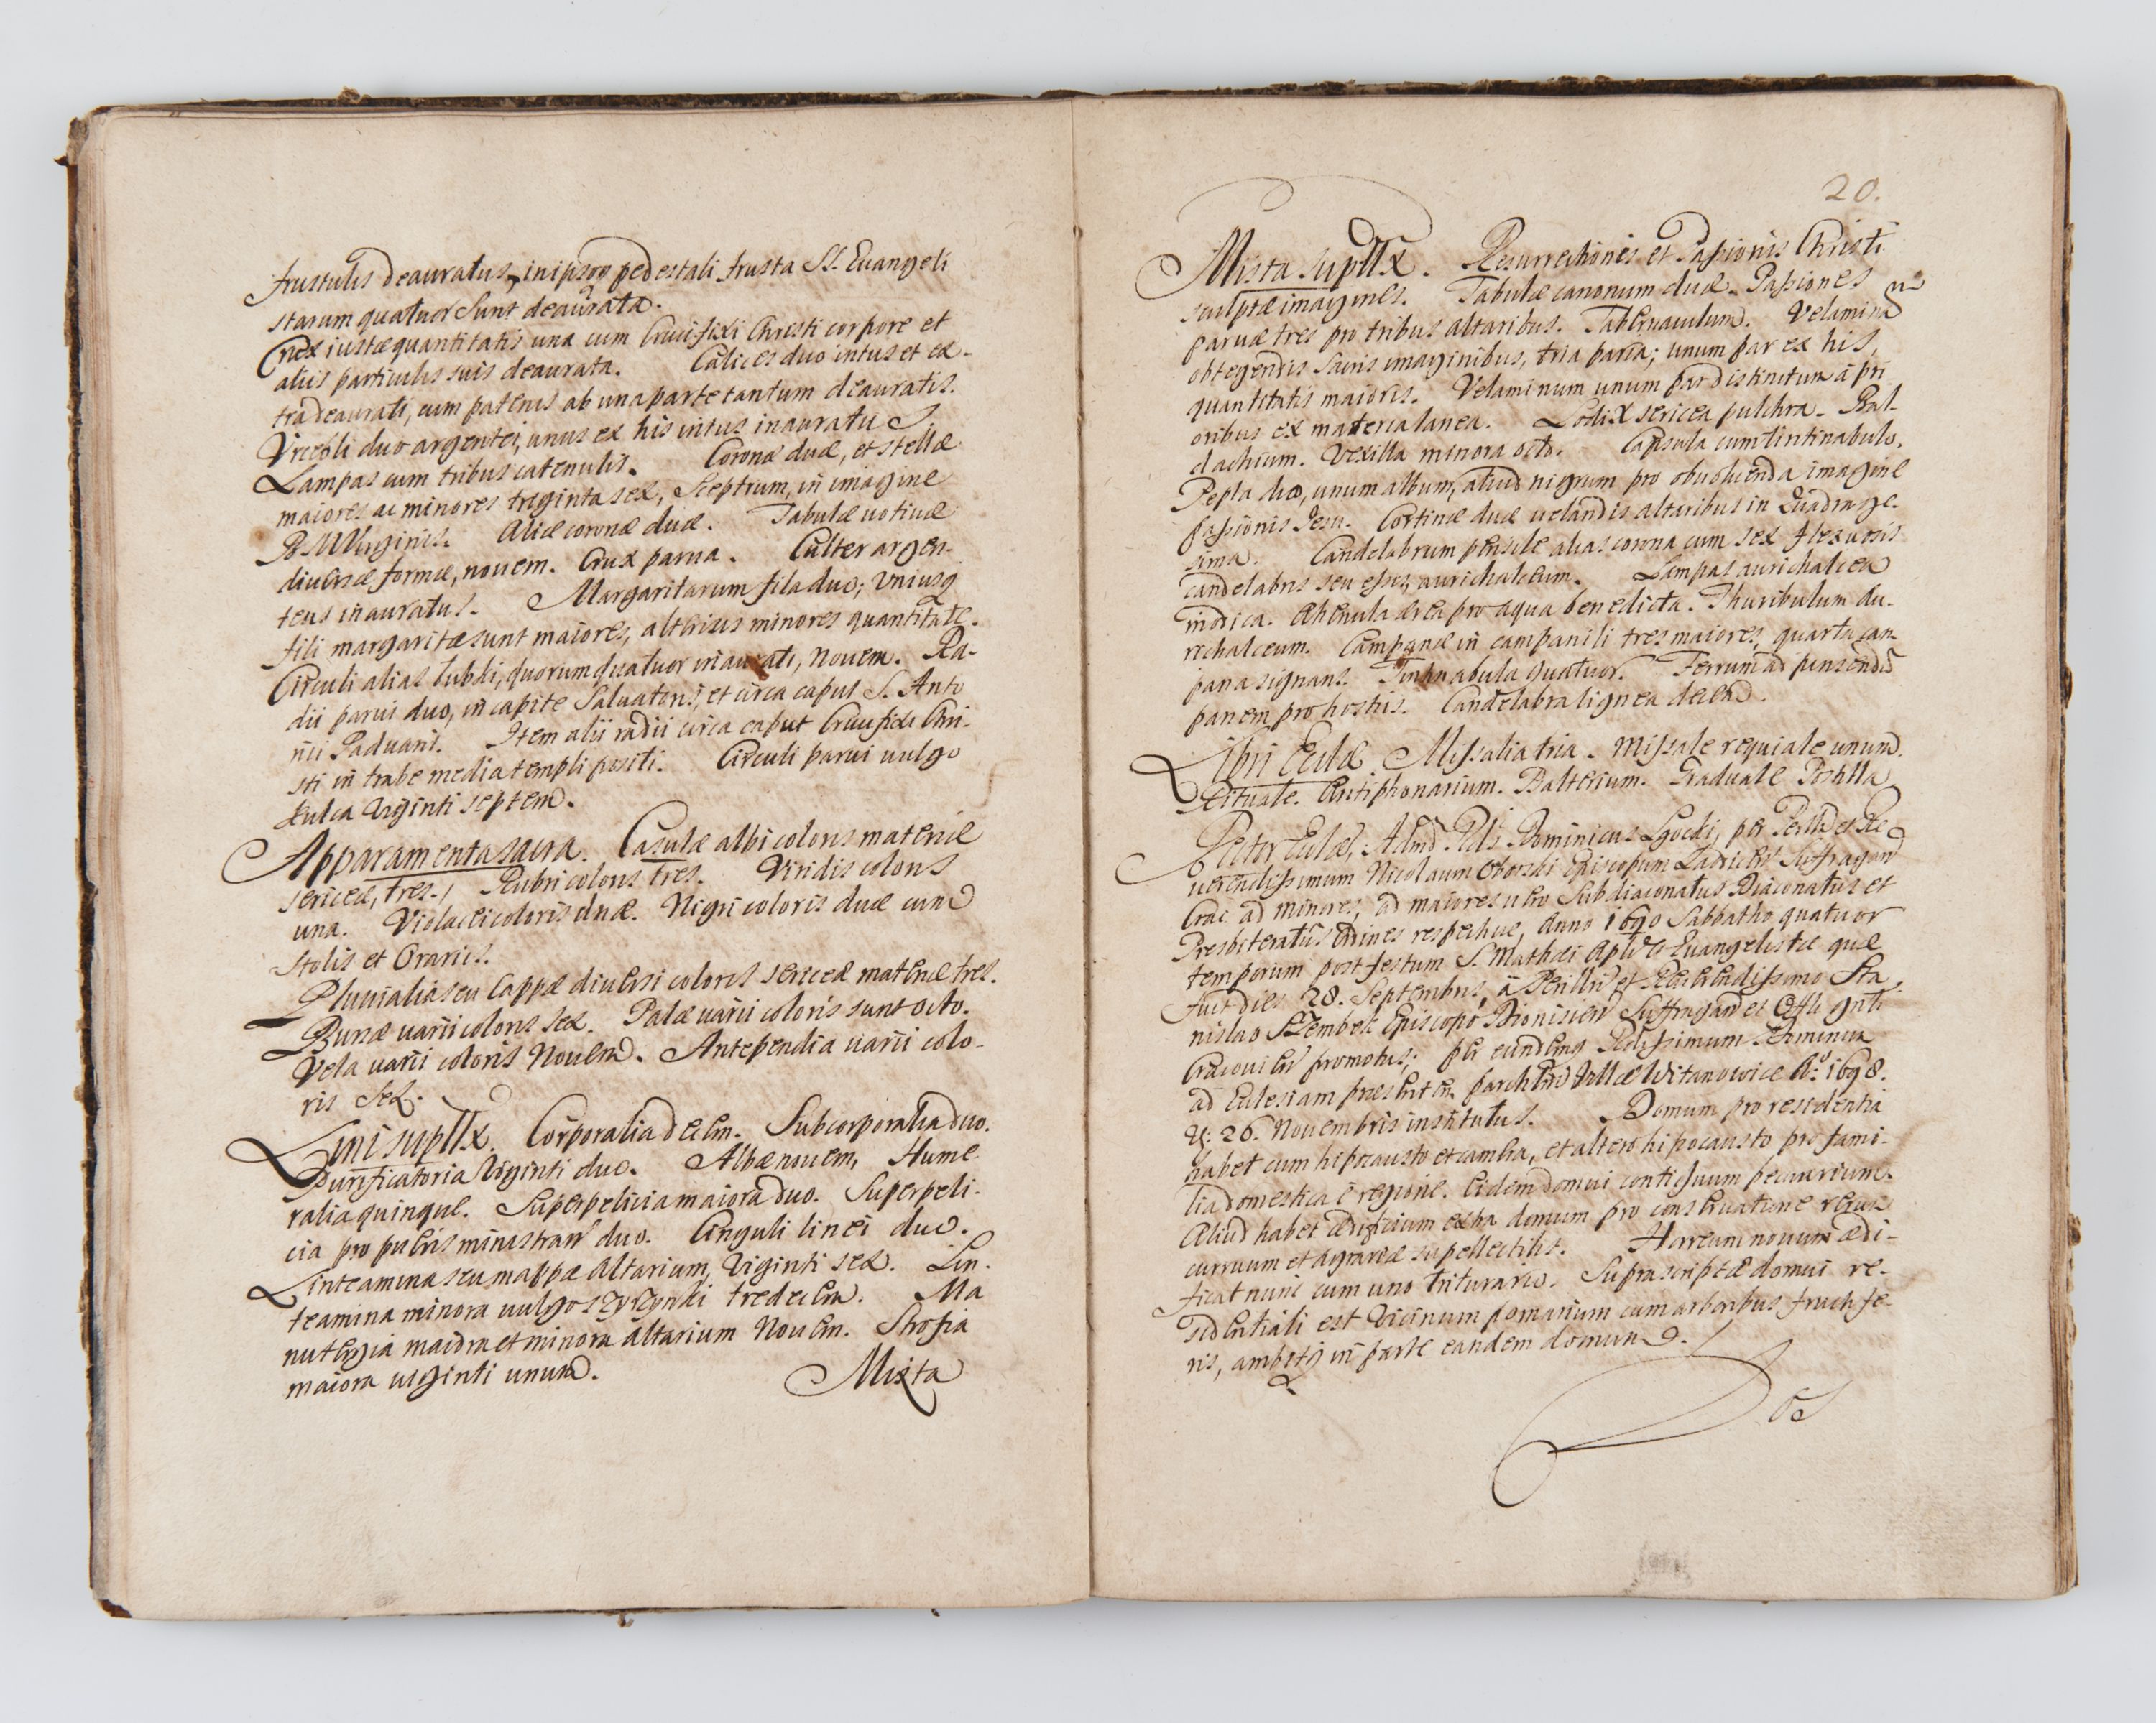 frustulis deauratus, in ipsoq pedestali frusta SS. Euangeli
starum quatuor sunt deaurata.
Crux iustæ quantitatis una cum Crucifixi Christi corpore et
aliis particulis suis deaurata. Calices duo intus et ex-
tra deaurati, cum patenis ab una parte tantum deauratis.
Urceoli duo argentei, unus ex his intus inauratus.
Lampas cum tribus catenulis. Coronæ duæ, et stellæ
maiores ac minores triginta sex, Sceptrum, in imagine
B. M. Virginis. Aliæ coronæ duæ. Tabulæ uotiuæ
diuersæ formæ, nouem. Crux parua. Culter argen-
teus inauratus. Margaritarum fila duo; uniusq
fili margaritæ sunt maiores, alterius minores quantitate.
Circuli alias tubki, quorum quatuor inaurati, nouem. Ra-
dii parui duo, in capite Saluatoris, et circa caput S. Anto
nii Paduani. Item alii radii circa caput Crucifixi Chri-
sti in trabe media templi positi. Circuli parui uulgo
kulca uiginti septem.
Apparamenta sacra. Casulæ albi coloris materiæ
sericeæ, tres. Rubri coloris tres. Viridis coloris
una. Violacei coloris duæ. Nigri coloris duæ cum
stolis et Orariis.
Pluuialia seu Cappæ diuersi coloris sericeæ materiæ tres.
Bursæ uarii coloris sex. Palæ uarii coloris sunt octo.
Vela uarii coloris nouem. Antependia uarii colo-
ris sex.
Lini supllx. Corporalia decem. Subcorporalia duo.
Purificatoria uiginti duo. Albæ nouem, Hume
ralia quinque. Superpelicia maiora duo. Superpeli-
cia pro pueris ministran duo. Cinguli linei duo.
Linteamina seu mappæ Altarium, uiginti sex. Lin-
teamina minora uulgo szyrzynki tredecim. Ma
nutergia maiora et minora altarium nouem. Strofia
maiora uiginti unum.
Mixta
20.
Mixta supllx. Resurrectionis et Passionis Christi
sculptæ imagines. Tabulæ canonum duæ. Passiones
paruæ tres pro tribus altaribus. Tabernaculum. Velamina
obtegendis sacris imaginibus, tria paria; unum par ex his,
quantitatis maioris. Velaminum unum par distinctum à pri
oribus ex materia lanea. Lodix sericea pulchra. Bal-
dachium. Vexilla minora octo. Capsula cum tintinabulo.
Pepla duo, unum album, aliud nigrum pro obuoluenda imagine
passionis Jesu. Cortinæ duæ uelandis altaribus in Quadrage-
sima. Candelabrum pensile alias corona cum sex flexuosis
candelabris seu essis, aurichalceum. Lampas aurichalcea
modica. Ahenula ærea pro aqua benedicta. Thuribulum au-
richalceum. Campanæ in campanili tres maiores, quarta cam
pana signans. Tintinabula quatuor. Ferrum ad pinsendũ
panem pro hostiis. Candelabra lignea decem.
Libri Ecclæ. Missalia tria. Missale requiale unum.
Rituale. Antiphonarium. Psalterium. Graduale. Postilla
Rector Ecclæ, Admd Rds Dominicus Lgocki, per Perillrem et Re
uerendissimum Nicolaum Oborski Episcopum Laodicen Suffragan
Crac ad minores, ad maiores uero Subdiaconatus Diaconatus et
Presbiteratûs Ordines respectiue, Anno 1690 Sabbatho quatuor
temporum post festum S. Mathæi Apli et Euangelistæ quæ
fuit dies 28. Septembris, à Perillri et Reuerendissimo Sta
nislao Szembek Episcopo Dionisien Suffragan et Offli gnli
Cracouien promotus; per eundemq Rdissimum Dominum
ad Ecclesiam præsentem parchlem Vallæ Witanowice Aº 1698.
d. 26. Nouembris institutus. Domum pro residentia
habet cum hipocausto et camera, et altero hipocausto pro fami-
lia domestica è regione. Eidem domui contiguum pecuarium.
Aliud habet ædificium extra domum pro conseruatione rerum
curruum et agrariæ supellectilis. Horreum nouum ædi-
ficat nunc cum uno triturario. Suprascriptæ domui re-
sidentiali est uicinum pomarium cum arboribus fructife-
ris, ambitq in parte eandem domum.
Dos